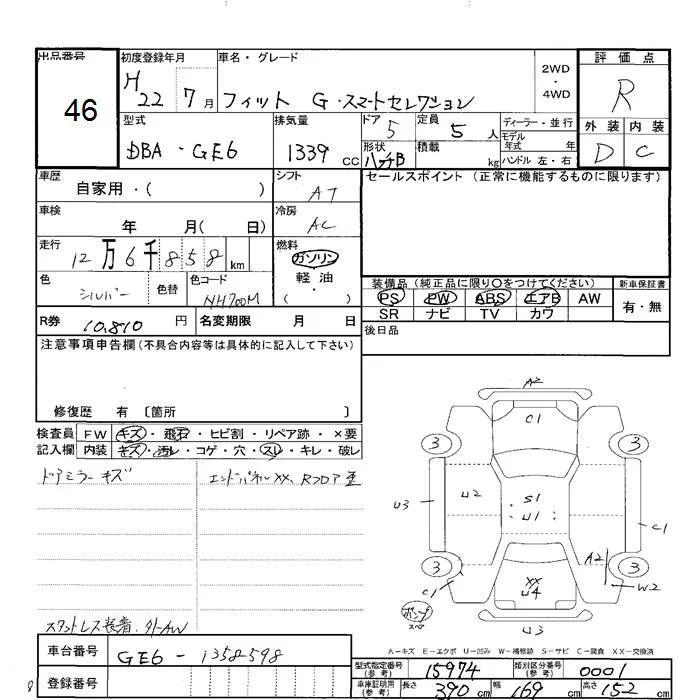 出品番号 46
初度登録年月 H 22 7月
車名・グレード フィット G・スマートセレクション
2WD・4WD
評価点 R
外装 D 内装 C
型式 DBA・GE6
排気量 1339 cc
ドア 5 形状 ハッチB
定員 5 人 積載 kg
ディーラー・並行
モデル年式 年
ハンドル 左・右
車歴 自家用・( )
シフト AT
セールスポイント (正常に機能するものに限ります)
車検 年 月( 日)
冷房 AC
走行 12万6千858km
燃料 ガソリン・軽油・( )
色 シルバー 色替 色コード NH700M
装備品 (純正品に限り○をつけてください)
PS PW ABS エアB AW
SR ナビ TV カワ
新車保証書 有・無
R券 10,810 円 名変期限 月 日
後日品
注意事項申告欄(不具合内容等は具体的に記入して下さい)
修復歴 有〔箇所 〕
検査員記入欄
FW キズ・飛石・ヒビ割・リペア跡・×要
内装 キズ・汚レ・コゲ・穴・スレ・キレ・破レ
ドアミラーキズ
エンドパネルXX、Rフロア歪
A2
C1
3 3
U3 U2 S1 U1 C1
3 A2 3
C1 XX U4 W2
U3
A-キズ E-エクボ U-凹み W-補修跡 S-サビ C-腐食 XX-交換済
車台番号 GE6-1358598
登録番号
型式指定番号(参考) 15974 類別区分番号(参考) 0001
車庫証明用(参考) 長さ 390 cm 幅 169 cm 高さ 152 cm